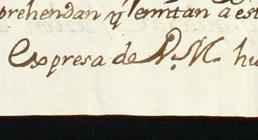 prehendan y remitan a est
expresa de V. M. hu